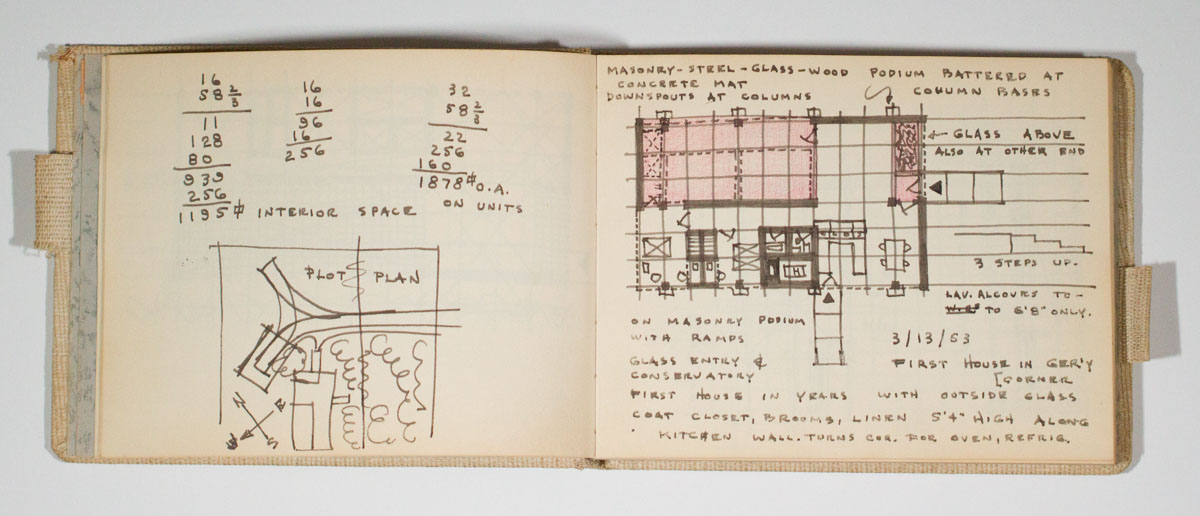 16
58 2/3
11
128
80
939
256
1195⌗ INTERIOR SPACE
16
16
96
16
256
32
58 2/3
22
256
160
1878⌗ O.A.
ON UNITS
PLOT PLAN
N
S
MASONRY-STEEL-GLASS-WOOD PODIUM BATTERED AT
CONCRETE MAT COLUMN BASES
DOWNSPOUTS AT COLUMNS
GLASS ABOVE
ALSO AT OTHER END
3 STEPS UP.
LAV. ALCOVES TO-
TO 6'8" ONLY.
ON MASONRY PODIUM
WITH RAMPS
3/13/53
GLASS ENTRY &
CONSERVATORY
FIRST HOUSE IN GER'Y
[CORNER
FIRST HOUSE IN YEARS WITH OUTSIDE GLASS
COAT CLOSET, BROOMS, LINEN 5'4" HIGH ALONG
KITCHEN WALL. TURNS COR. FOR OVEN, REFRIG.